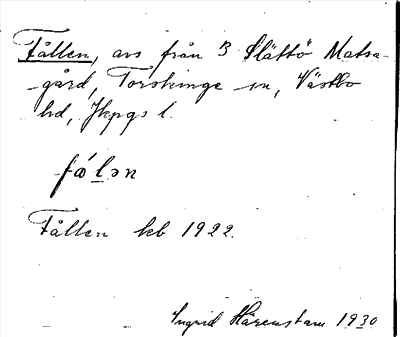 Fållen, avs från 3 Slättö Matsa-
gård, Torskinge sn, Västbo
hd, Jkpgs l.
fǻlən
Fållen kb 1922.
Ingrid Härenstam 1930